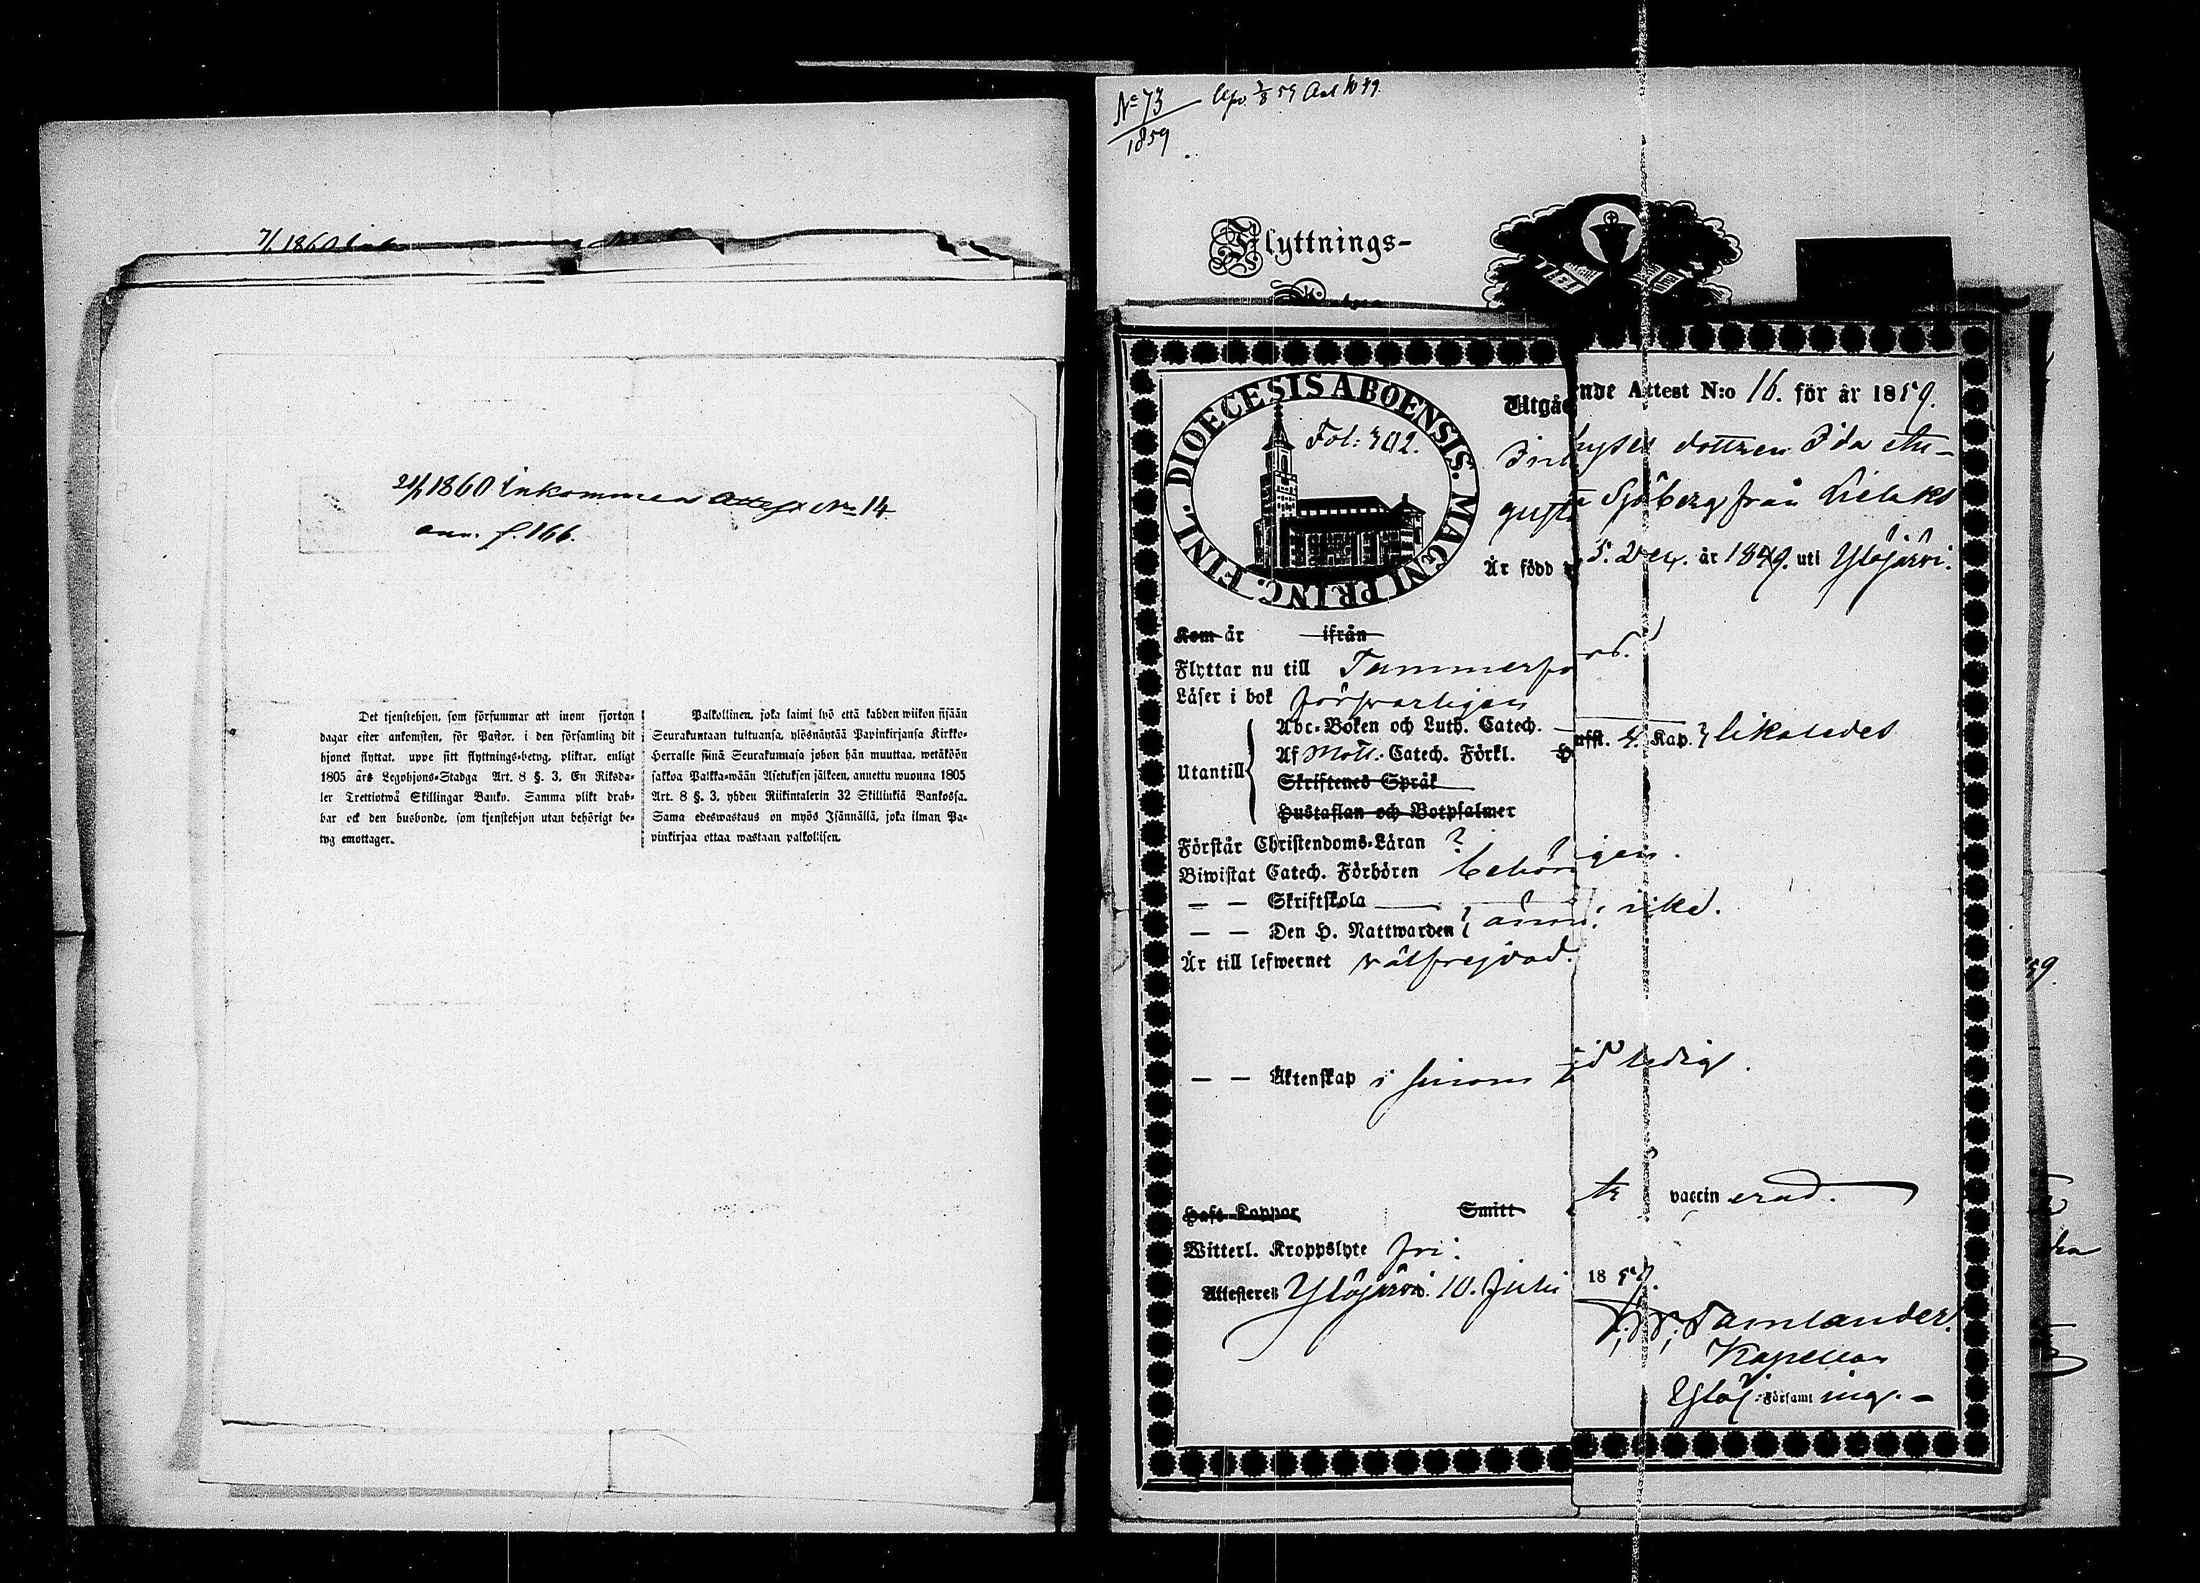 7/1 1860
21/1 1860 Inkommen Attest No 14
ann. f. 166.
Det tjenstehjon, som försummar att inom fjorton
dagar efter ankomsten, för Pastor, i den församling dit
hjonet flyttat, uppe sitt flyttnings-betyg, pliktar, enligt
1805 års Legohjons-Stadga Art. 8 §. 3, En Riksda-
ler Trettiotwå Skillingar Banko. Samma plikt drab-
bar ock den husbonde, som tjenstehjon utan behörigt be-
tyg emottager.
Palkollinen, joka laimi lyö että kahden wiikon sisään
Seurakuntaan tultuansa, ylösnäytää Papinkirjansa Kirkko-
Herralle siinä Seurakunnasa johon hän muuttaa, wetäköön
sakkoa Palkka-wään Asetuksen jälkeen, annettu wuonna 1805
Art. 8 §. 3, yhden Riikintalerin 32 Skillinkiä Bankossa.
Sama edeswastaus on myös Isännällä, joka ilman Pa-
pinkirjaa ottaa wastaan palkollisen.
No 73
1859
59
Flyttnings-
DIOECESIS ABOENSIS. MAGNI PRINC. FINL.
Fol: 302.
Utgående Attest N:o 16. för år 1859.
Inhyses dottren Ida Au-
gusta Sjöberg från Lielaks
Är född 5. Dec. år 1849. uti Ylöjärvi.
Kom år ifrån
Flyttar nu till Tammerfors.
Läser i bok försvarligen
Utantill
Abc-Boken och Luth. Catech.
Af Moll. Catech. Förkl. Husst. 4. Kap. likaledes
Skriftenes Språk
Hustaflan och Botpsalmer
Förstår Christendoms-Läran ?
Biwistat Catech. Förhören behörigen.
— — Skriftskola
— — Den H. Nattwarden
Är till lefwernet välfrejdad.
— — Äktenskap i sinom tid ledig.
Haft Koppor Smitt vaccinerad.
Witterl. Kroppslyte fri.
Attesterer Ylöjärvi. 10. Juli 1859.
Tamlander.
Kapellan
Ylöj. Församling. —